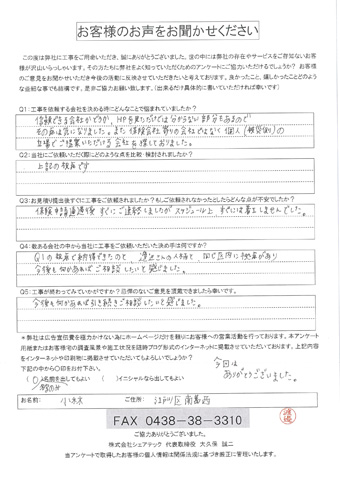 お客様のお声をお聞かせください
この度は弊社に工事をご用命いただき、誠にありがとうございました。世の中には弊社の存在やサービスをご存知ないお客
様が沢山いらっしゃいます。その方たちに弊社をよく知っていただくためのアンケートにご協力いただけるでしょうか？ お客様
のご意見をお聞かせいただき今後の活動に反映させていただきたいと考えております。良かったこと、嬉しかったことどのよう
な些細な事でも結構です。是非ご協力お願い致します。（出来るだけ具体的に書いていただければ幸いです）
Q1：工事を依頼する会社を決める時にどんなことで悩まれていましたか？
信頼できる会社かどうか、HPを見ただけでは分からない部分もあるので
その点は気になりました。また保険会社寄りの会社ではなく個人（被災側）の
立場でご提案いただける会社を探しておりました。
Q2：当社にご依頼いただく際にどのような点を比較・検討されましたか？
上記の観点です
Q3：お見積り提出後すぐに工事を依頼されましたか？もしご依頼されなかったとしたらどんな点が不安でしたか？
保険申請通過後すぐにご連絡しましたがスケジュール上すぐには着工しませんでした。
Q4：数ある会社の中から当社に工事をご依頼いただいた決め手は何ですか？
Q1の観点で納得できたのと、 さんの人柄と、同じ区内に拠点があり
今後も何かあればご相談したいと感じました。
Q5：工事が終わってみていかがですか？忌憚のないご意見を頂戴できましたら幸いです。
今後も何かあれば引き続きご相談したいと感じました。
＊弊社は広告宣伝費を極力かけない為にホームページだけを頼りにお客様への営業活動を行っております。本アンケート
用紙またはお客様宅の調査風景や施工状況を随時ブログ形式のインターネットに掲載させていただいております。上記内容
をインターネットや印刷物に掲載させていただいてもよろしいでしょうか？
下記の中から〇印をお付け下さい。
（〇）お名前を出してもよい （ ）イニシャルなら出してもよい
今回は
ありがとうございました。
お名前： 小 ご住所： 江戸川区南葛西
FAX 0438-38-3310
ご協力ありがとうございました。
株式会社シェアテック 代表取締役 大久保 誠二
当アンケートで取得したお客様の個人情報は関係法令に基づき厳正に管理いたします。